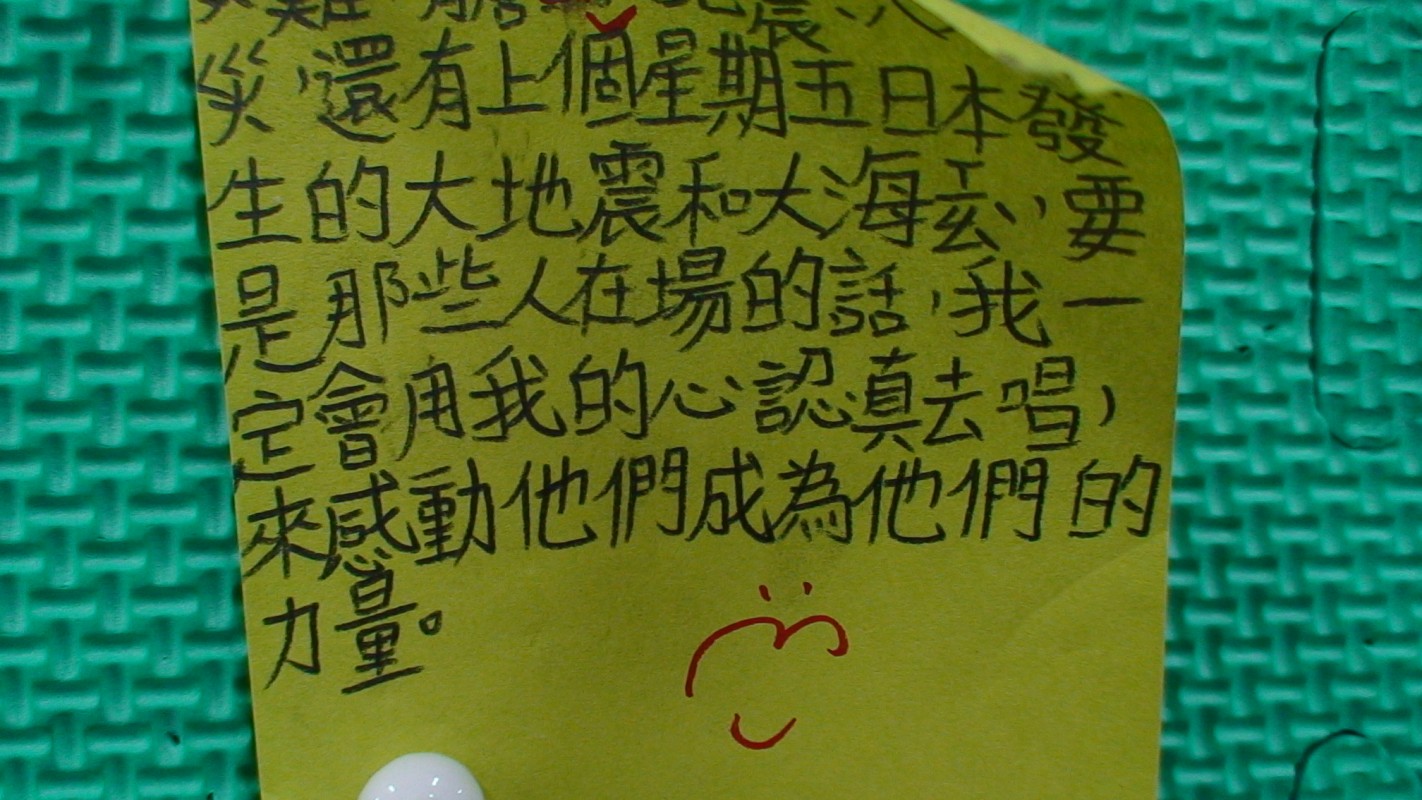 災難
災,還有上個星期五日本發
生的大地震和大海嘯,要
是那些人在場的話,我一
定會用我的心認真去唱,
來感動他們成為他們的
力量。